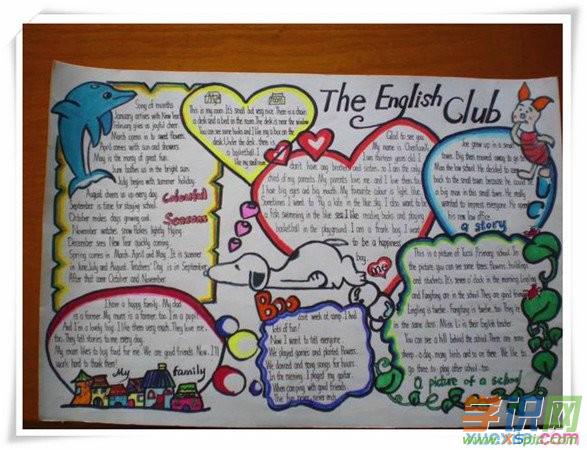 The English Club
Song of months
January arrives with New Year
February gives us joyful cheer
March comes in to sweet flowers
April comes with sun and showers
May is the merry of great fun.
June bathes us in the bright sun.
July begins with summer holiday.
August cheers us up every day.
September is time for staying school.
October makes days growing cool.
November watches snow flakes lightly flying
December sees New Year quickly coming.
Spring comes in March, April and May. It is summer
in June, July and August. Teachers' Day is in September.
After that come October and November
Colourful
Seasons
my
room
This is my room. It's small but very nice. There is a chair
a desk and a bed in the room. The desk is near the window.
You can see some books and
on the
desk. Under the desk, there is
a basketball. I
like my small room
Glad to see
you.
My name is
I am thirteen years old. I
don't have any brothers and sisters, so I am the only
child of my parents. My parents love me, and I love them too.
I have big eyes and big mouth. My favourite colour is blue.
Sometimes I want to fly a kite in the blue sky. I also want to be
a fish swimming in the blue sea. I like reading books and playing
basketball in the playground. I am a
boy. I want
to be a happiness
boy.
me
Joe grew up in a small
town. Big then moved away to go to
Man the law school. He decided to come
back to the small town because he could be
a big man in this small town. He really
wanted to impress everyone. He opened
his new law office.
a story
I have a happy family. My dad
is a farmer. My mum is a farmer, too. I'm a pupil
And I'm a lovely boy. I like them very much. They love me,
too. They tell stories to me every day.
My mum likes to buy food for me. We are good friends. Now, I'll
work hard to thank them!
My family
Boo
week at camp. I had
lots of fun!
Now I want to tell everyone
We played games and planted flowers.
We danced and sang songs for hours
In the evening I played my guitar.
When camping with good friends
The fun never never ends.
This is a picture of
Primary school. In
the picture, you can see some trees, flowers, buildings
and students. It's seven o'clock in the morning. Lingling
and Fangfang are in the school. They are good friends
Lingling is twelve. Fangfang is twelve, too. They're
in the same class. Miss Li is their English teacher.
You can see a hill behind the school. There are some
sheep, a dog, many birds and
on there. We like to
go there to play after school, too.
a picture of a school
学识网
xuexila.com
www.xspic.com